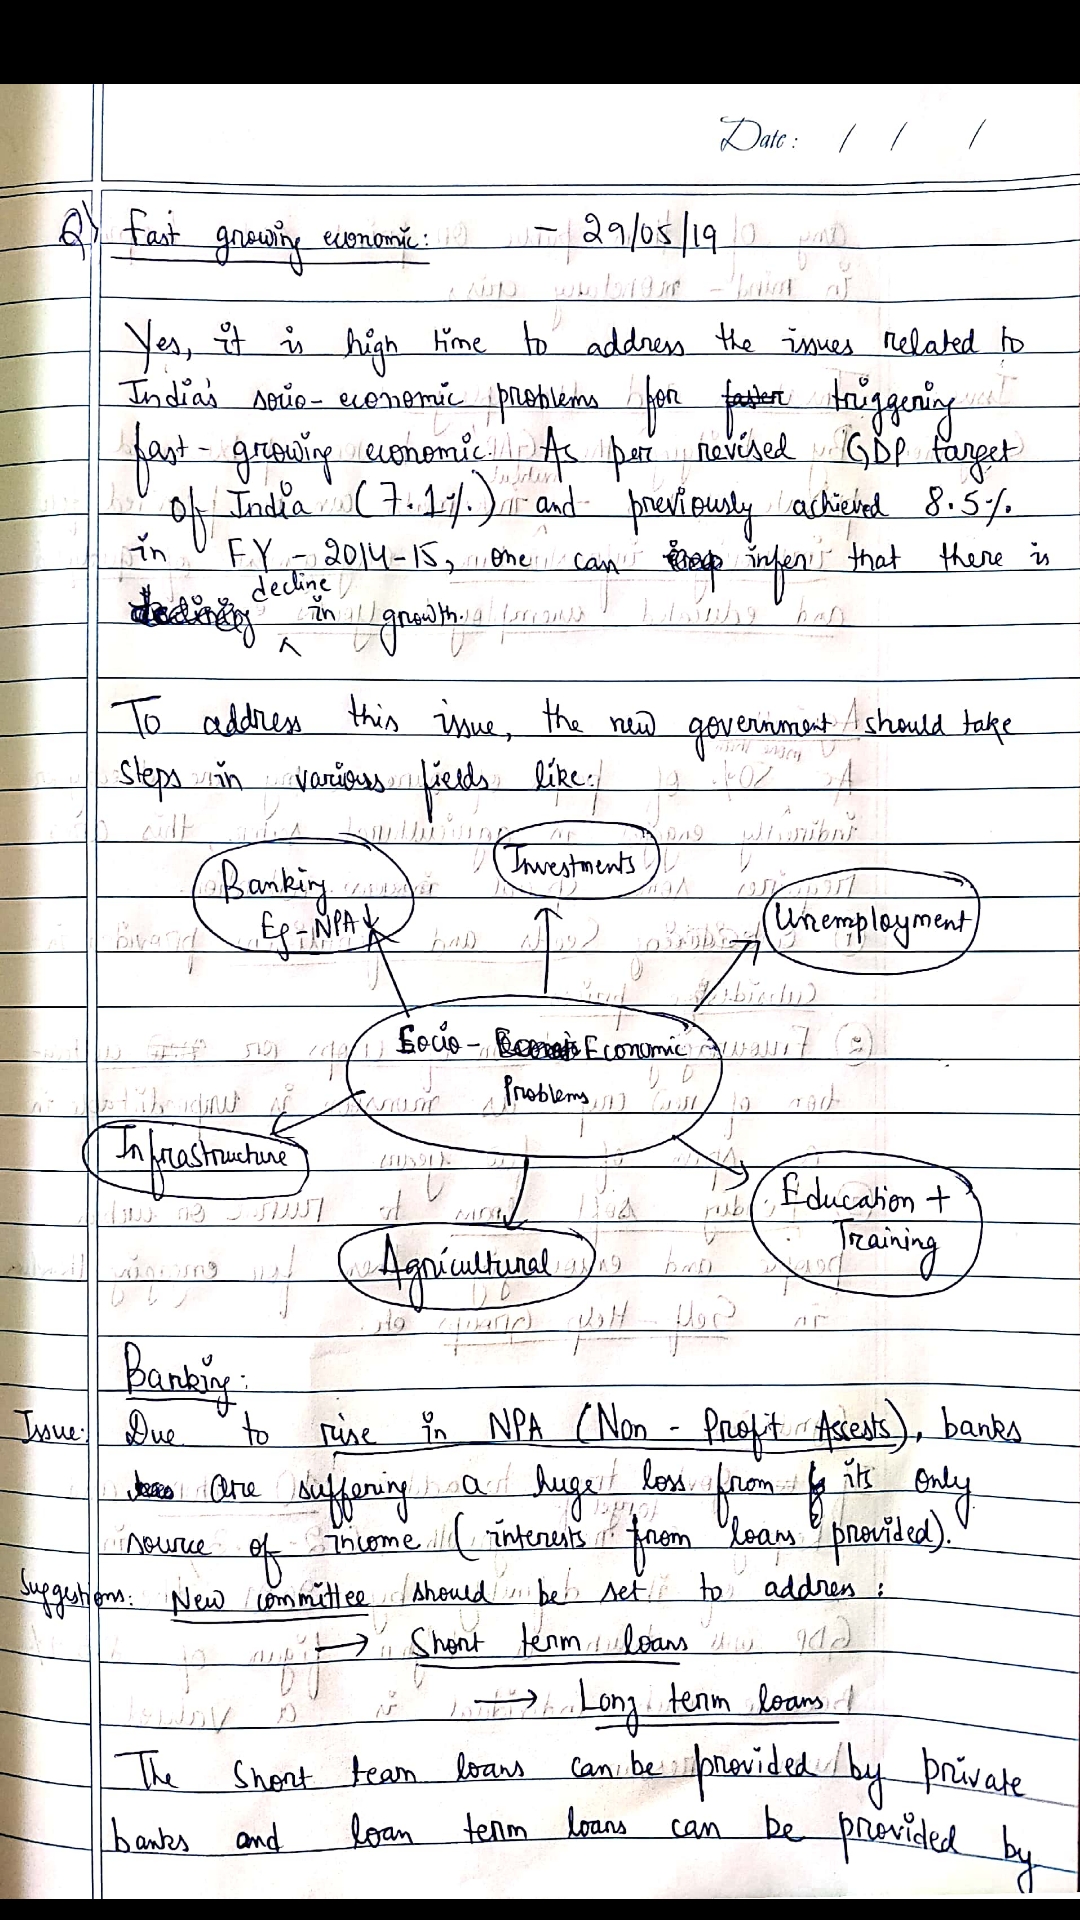 Date: / / /
Q) Fast growing economic: - 29/05/19
Yes, it is high time to address the issues related to
India's socio-economic problems for faster triggering
fast-growing economic. As per revised GDP target
of India (7.1%) and previously achieved 8.5%
in FY-2014-15, one can infer that there is
decline
in growth.
To address this issue, the new government should take
steps in various fields like:
Investments
Banking
Eg-NPA↓
Unemployment
Socio-Economic
Problems
Infrastructure
Education +
Training
Agricultural
Banking:
Issue: Due to rise in NPA (Non-Profit Assests), banks
are suffering a huge loss from its only
source of income (interests from loans provided).
Suggestions: New committee should be set to address:
→ Short term loans
→ Long term loans
The Short team loans can be provided by private
banks and loan term loans can be provided by